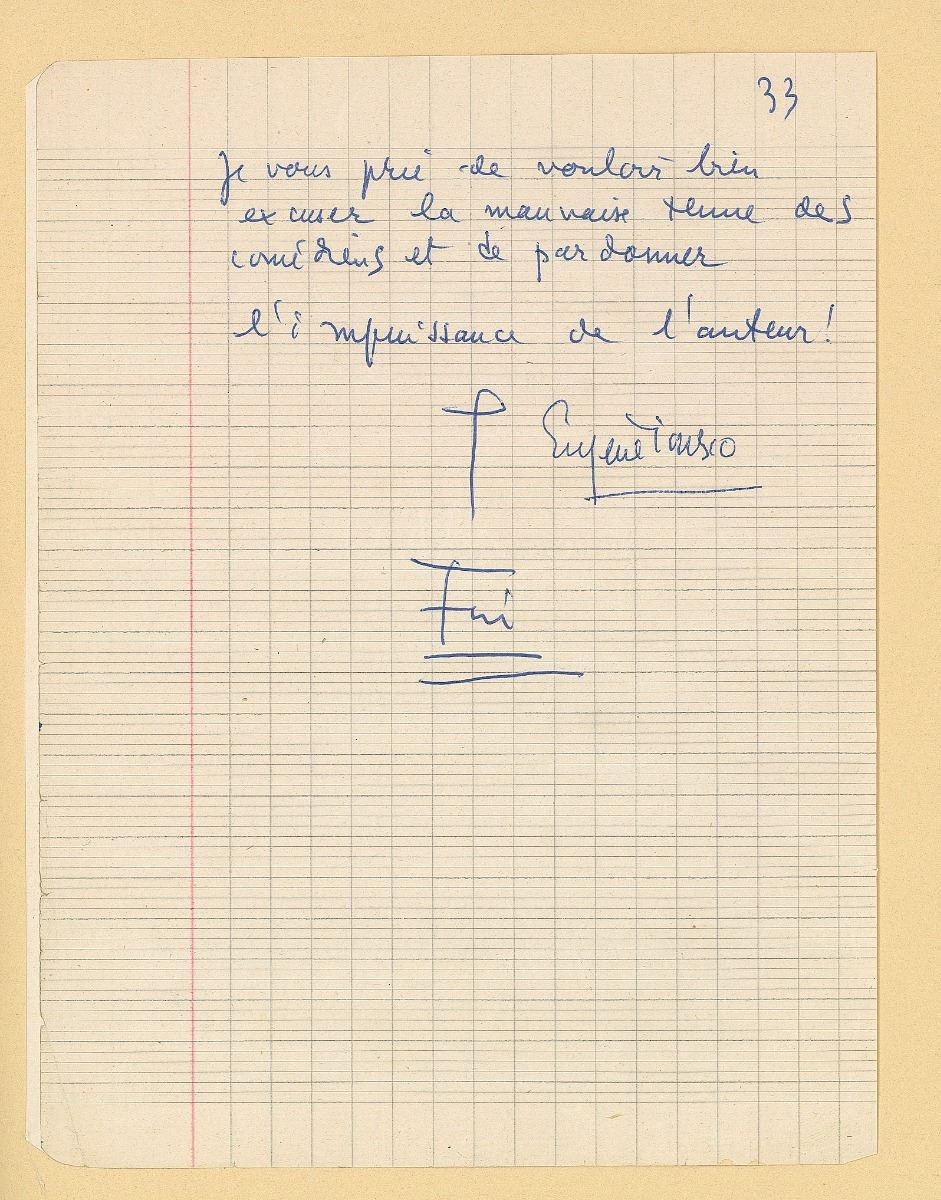 33
Je vous prie de vouloir bien
excuser la mauvaise tenue des
comédiens et de pardonner
l'impuissance de l'auteur!
Eugène Ionesco
Fin